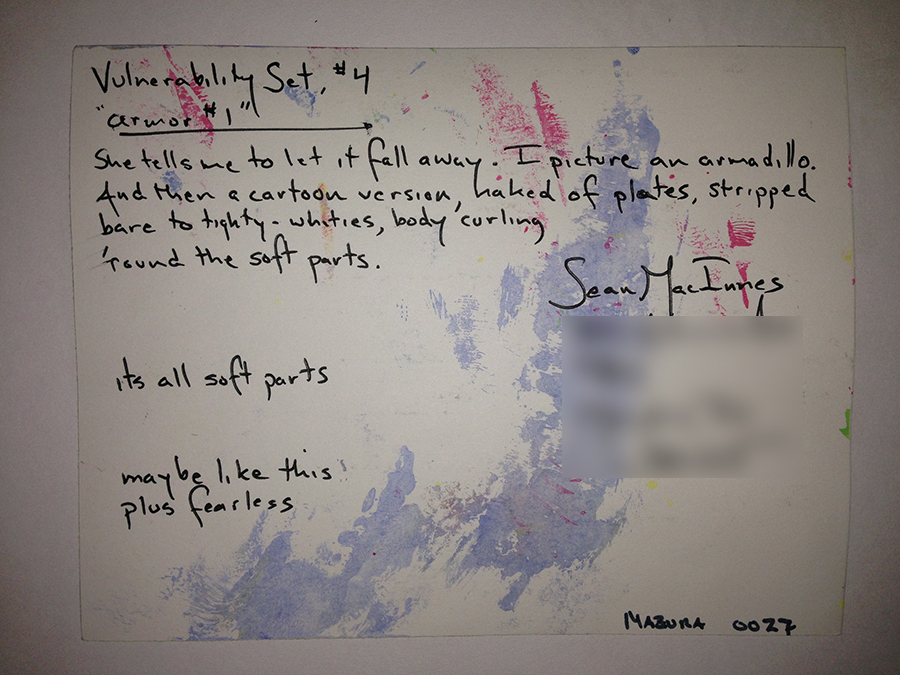 Vulnerability Set, #4
"armor #1"
She tells me to let it fall away. I picture an armadillo.
And then a cartoon version, naked of plates, stripped
bare to tighty-whities, body curling
'round the soft parts.
Sean MacInnes
its all soft parts
maybe like this
plus fearless
MAZURA 0027